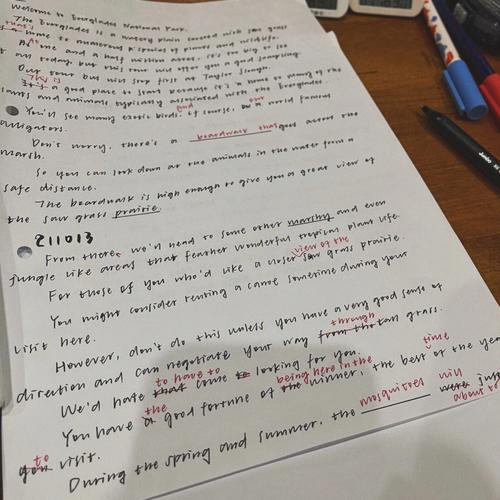 Welcome to Everglades National Park.
The Everglades is a watery plain covered with saw grass
that's
home to numerous species of plants and wildlife.
At one and a half million acres, it's too big to see
it all today, but this tour will offer you a good sampling.
Our tour bus will stop first at Taylor Slough.
This is
It's a good place to start because it's home to many of the
plants and animals typically associated with the Everglades.
You'll see many exotic birds, of course, our world famous
and
alligators.
Don't worry, there's a boardwalk that goes across the
marsh.
So you can look down at the animals in the water from a
safe distance.
The boardwalk is high enough to give you a great view of
the saw grass prairie.
211013
From there, we'll head to some other marshy and even
jungle like areas that feather wonderful tropical plant life.
view of the
For those of you who'd like a closer saw grass prairie.
You might consider renting a canoe sometime during your
visit here.
However, don't do this unless you have a very good sense of
through
direction and can negotiate your way from the tan grass.
to have to
We'd hate that come to looking for you.
the being here in the time
You have a good fortune of the winner, the best of the year
to
you visit.
mosquitoes will
During the spring and summer, the were just
about to